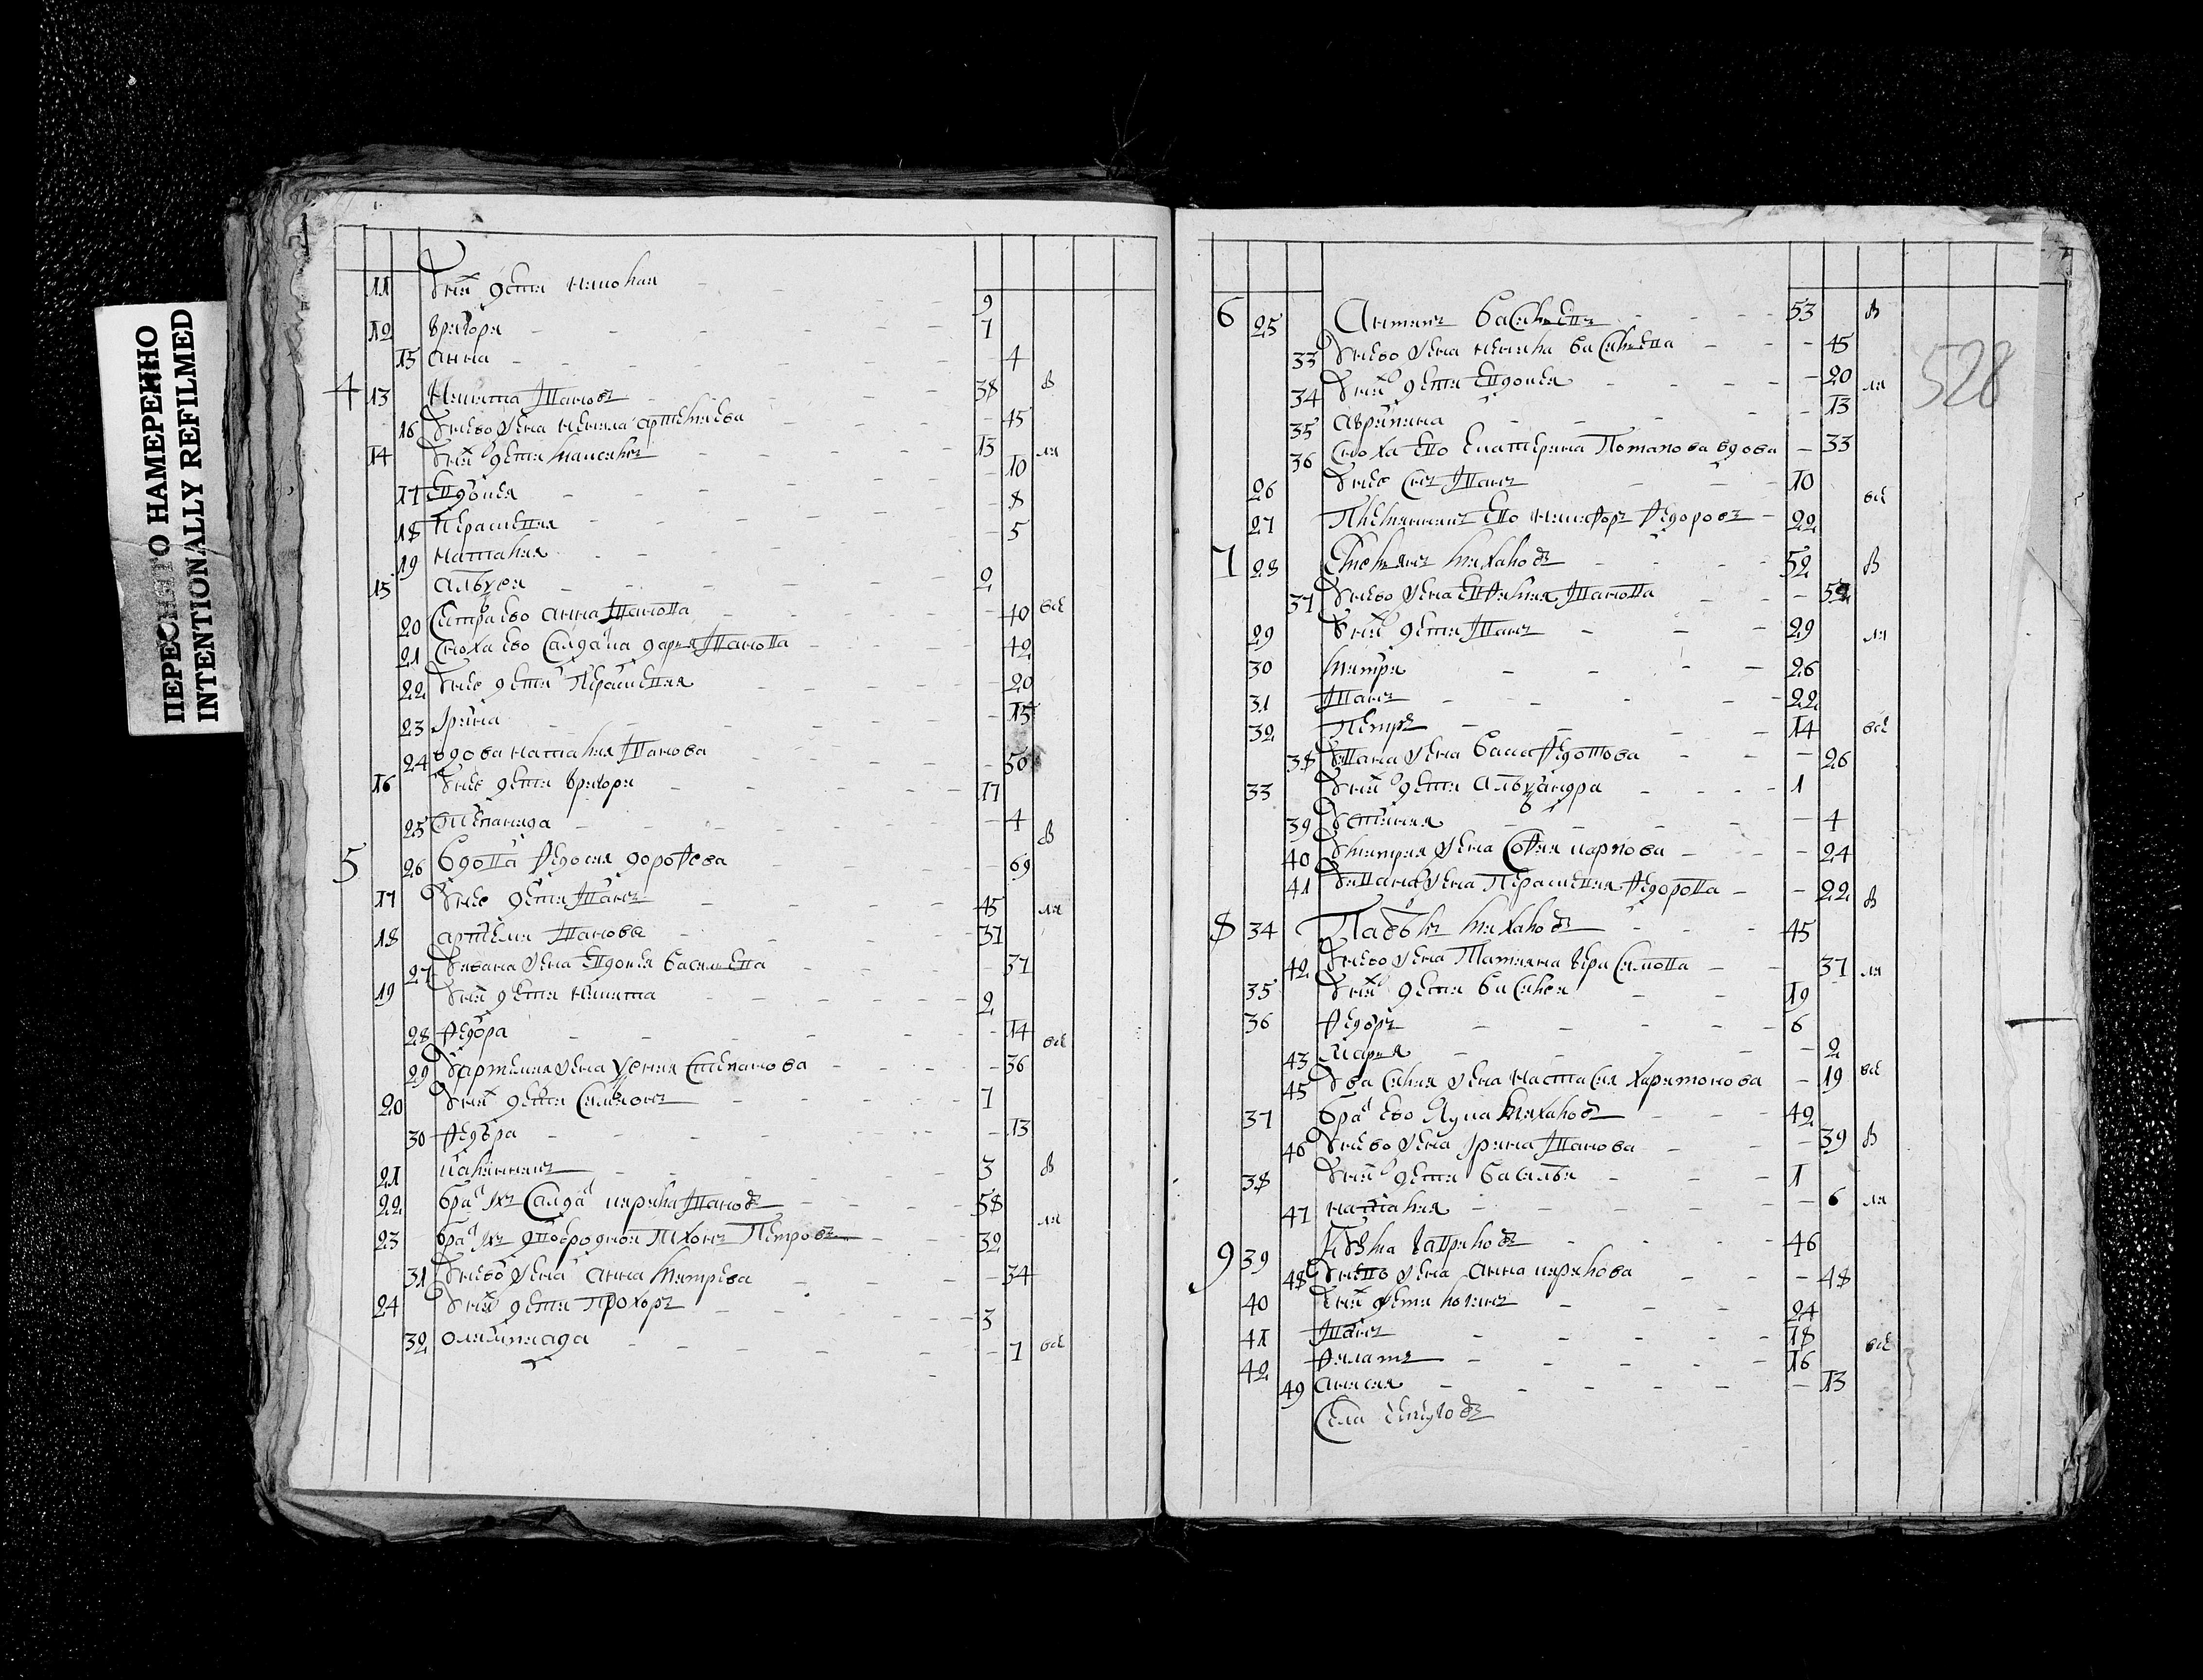 ПЕРЕСНЯТО НАМЕРЕННО
INTENTIONALLY REFILMED
11 У них дети Николай 9
12 Григори 7
15 Анна 4
4 13 Никита Иванов 38 В
16 У нево жена Ненила Артемиева 45
14 У них дети Максим 13 ли
17 Евдокея 10
18 Парасковя 8
19 Наталия 5
15 Алексеи 2
20 Сестра ево Анна Иванова 40 все
21 Сноха ево Салдатка Дарья Иванова 42
22 У нее дети Парасковия 20
23 Ирина 15
24 Вдова Наталия Иванова 50
16 У нее дети Григори 17
25 Степанида 4 В
5 26 Вдова Федосия Дорофеева 69
17 У нее дети Иван 45 ли
18 Артемеи Ивановы 37
27 У Ивана жена Евдокея Василева 37
19 У них дети Никита 2
28 Федора 14 все
29 У Артемия жена Ксения Степанова 36
20 У них дети Симион 7
30 Федора 13
21 Калинник 3 В
22 Брат их Салдат Кирила Иванов 58 ли
23 Брат их двоюродной Тихон Петров 32
31 У нево жена Анна Дмитрева 34
24 У них дети Прохор 3
32 Олимпиада 7 все
528
6 25 Антип Василев 53 В
33 У нево жена Ненила Василева 45
34 У них дети Евдокея 20 ли
35 Агрипина 13
36 Сноха ево Екатерина Потапова вдова 33
26 У нее сын Иван 10 все
27 Племянник ево Никифор Федоров 22
7 28 Емельян Михаилов 52 В
37 У нево жена Евфимия Иванова
29 У них дети Иван 29 ли
30 Дмитри 26
31 Иван 22
32 Петр 14 все
38 У Ивана жена Васса Федотова 26
33 У них дети Александра 1
39 Устиния 4
40 У Дмитрия жена София Карпова 24
41 У Ивана жена Парасковия Федорова 22 В
8 34 Павел Михаилов 45
42 У нево жена Татияна Герасимова 37 ли
35 У них дети Василеи 19
36 Федор 6
43 Мария 2
45 У Василия жена Настасия Харитонова 19 все
37 Брат ево Лука Михаилов 42
46 У нево жена Ирина Иванова 39 В
38 У них дети Василеи 1
47 Наталия 6 ли
9 39 Козма Гаврилов 46
48 У нево жена Анна Кирилова 48
40 У них дети Логин 24
41 Иван 18 все
42 Филат 16
49 Анисия 13
Села